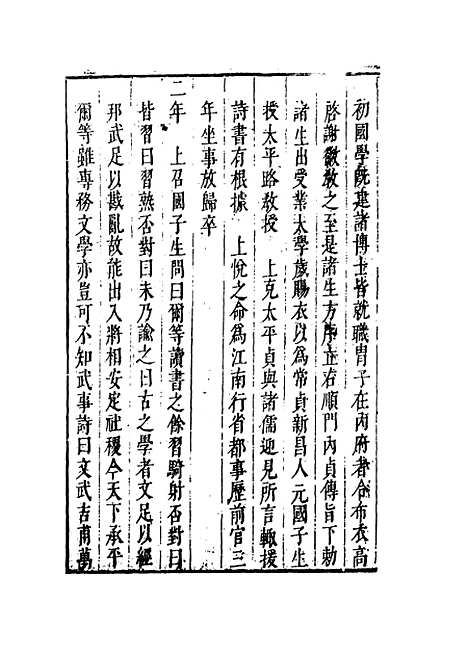 初國學旣建諸博士皆就職胄子在內府者合布衣高
啓謝徽教之至是諸生方序立右順門內貞傳旨下勅
諸生出受業太學歲賜衣以為常貞新昌人元國子生
授太平路教授　上克太平貞與諸儒迎見所言輙援
詩書有根據　上悅之命爲江南行省都事歷前官三
年坐事放歸卒
二年　上召國子生問曰爾等讀書之餘習騎射否對曰
皆習曰習熟否對曰未乃諭之曰古之學者文足以經
邦武足以戡亂故能出入將相安定社稷今天下承平
爾等雖專務文學亦豈可不知武事詩曰文武吉甫萬